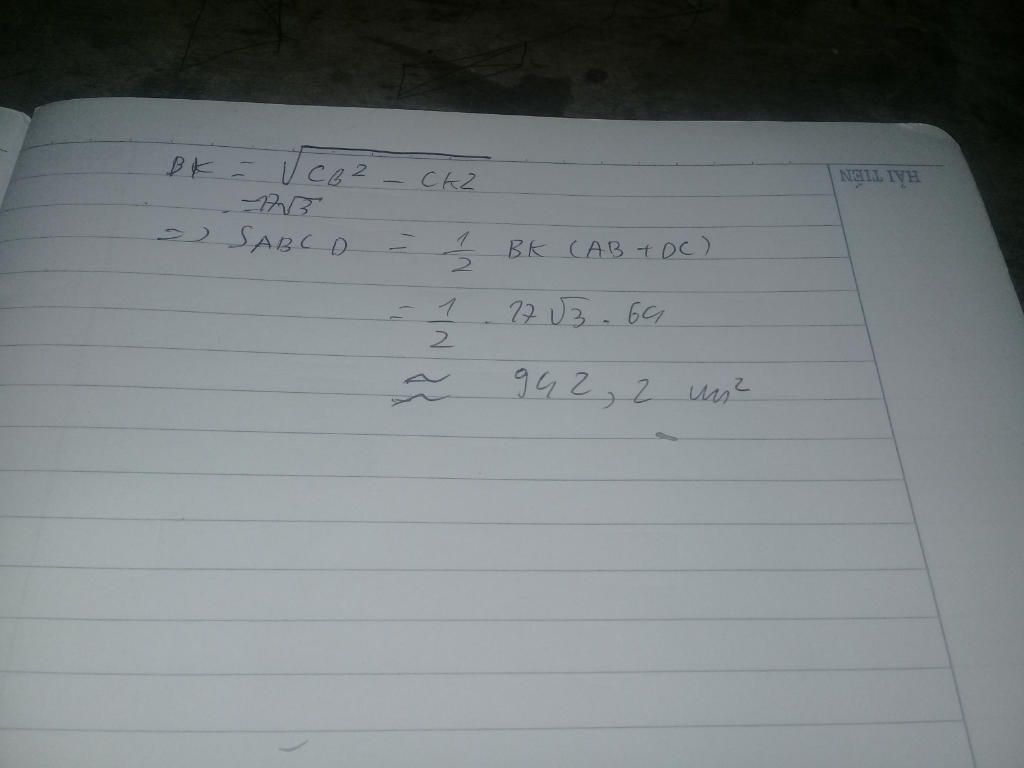 BK = √CB² - CK2
= 17√3
=> SABCD = 1/2 BK (AB + DC)
= 1/2 . 17√3 . 64
≈ 942,2 cm²
HẢI TIẾN